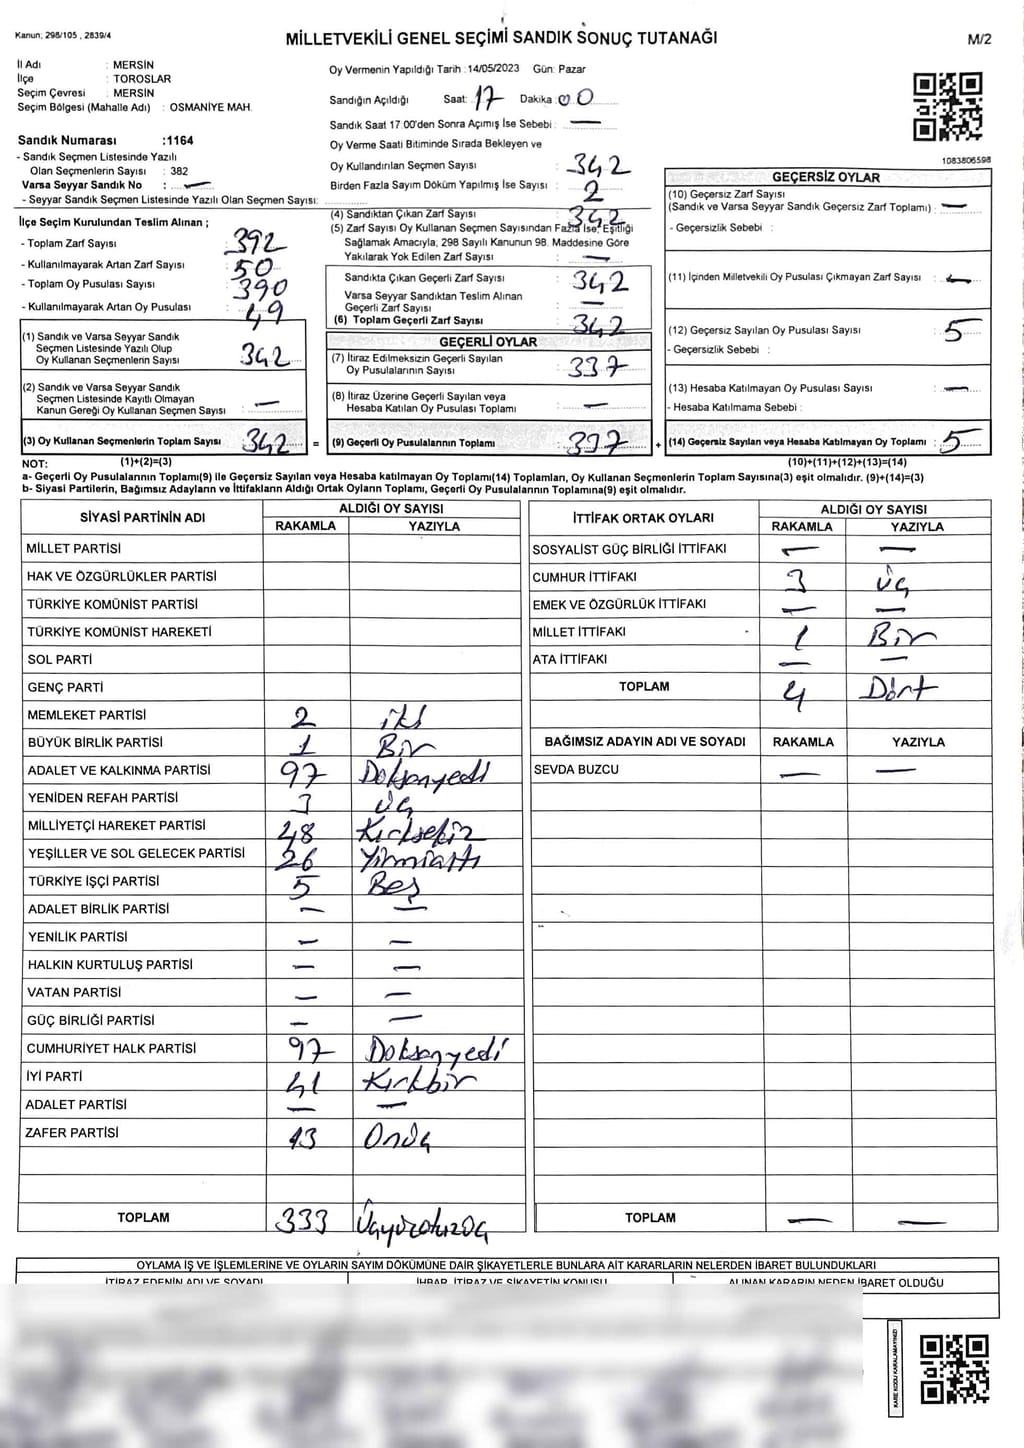 Kanun; 298/105 , 2839/4
MİLLETVEKİLİ GENEL SEÇİMİ SANDIK SONUÇ TUTANAĞI
M/2
İl Adı : MERSİN
İlçe : TOROSLAR
Seçim Çevresi : MERSİN
Seçim Bölgesi (Mahalle Adı) : OSMANİYE MAH.
Sandık Numarası :1164
- Sandık Seçmen Listesinde Yazılı
Olan Seçmenlerin Sayısı : 382
Varsa Seyyar Sandık No : —
- Seyyar Sandık Seçmen Listesinde Yazılı Olan Seçmen Sayısı:
Oy Vermenin Yapıldığı Tarih :14/05/2023 Gün: Pazar
Sandığın Açıldığı Saat: 17 Dakika: 00
Sandık Saat 17.00'den Sonra Açımış İse Sebebi : —
Oy Verme Saati Bitiminde Sırada Bekleyen ve
Oy Kullandırılan Seçmen Sayısı : 342
Birden Fazla Sayım Döküm Yapılmış İse Sayısı : 2
1083806598
İlçe Seçim Kurulundan Teslim Alınan ;
- Toplam Zarf Sayısı : 392
- Kullanılmayarak Artan Zarf Sayısı : 50
- Toplam Oy Pusulası Sayısı : 390
- Kullanılmayarak Artan Oy Pusulası : 49
(1) Sandık ve Varsa Seyyar Sandık
Seçmen Listesinde Yazılı Olup
Oy Kullanan Seçmenlerin Sayısı : 342
(2) Sandık ve Varsa Seyyar Sandık
Seçmen Listesinde Kayıtlı Olmayan
Kanun Gereği Oy Kullanan Seçmen Sayısı : —
(3) Oy Kullanan Seçmenlerin Toplam Sayısı : 342 =
(4) Sandıktan Çıkan Zarf Sayısı : 342
(5) Zarf Sayısı Oy Kullanan Seçmen Sayısından Fazla İse, Eşitliği
Sağlamak Amacıyla; 298 Sayılı Kanunun 98. Maddesine Göre
Yakılarak Yok Edilen Zarf Sayısı : —
Sandıkta Çıkan Geçerli Zarf Sayısı : 342
Varsa Seyyar Sandıktan Teslim Alınan
Geçerli Zarf Sayısı : —
(6) Toplam Geçerli Zarf Sayısı : 342
GEÇERLİ OYLAR
(7) İtiraz Edilmeksizin Geçerli Sayılan
Oy Pusulalarının Sayısı : 337
(8) İtiraz Üzerine Geçerli Sayılan veya
Hesaba Katılan Oy Pusulası Toplamı : —
(9) Geçerli Oy Pusulalarının Toplamı : 337 +
GEÇERSİZ OYLAR
(10) Geçersiz Zarf Sayısı
(Sandık ve Varsa Seyyar Sandık Geçersiz Zarf Toplamı) : —
- Geçersizlik Sebebi :
(11) İçinden Milletvekili Oy Pusulası Çıkmayan Zarf Sayısı : —
(12) Geçersiz Sayılan Oy Pusulası Sayısı : 5
- Geçersizlik Sebebi :
(13) Hesaba Katılmayan Oy Pusulası Sayısı : —
- Hesaba Katılmama Sebebi :
(14) Geçersiz Sayılan veya Hesaba Katılmayan Oy Toplamı : 5
NOT: (1)+(2)=(3) (10)+(11)+(12)+(13)=(14)
a- Geçerli Oy Pusulalarının Toplamı(9) ile Geçersiz Sayılan veya Hesaba katılmayan Oy Toplamı(14) Toplamları, Oy Kullanan Seçmenlerin Toplam Sayısına(3) eşit olmalıdır. (9)+(14)=(3)
b- Siyasi Partilerin, Bağımsız Adayların ve İttifakların Aldığı Ortak Oyların Toplamı, Geçerli Oy Pusulalarının Toplamına(9) eşit olmalıdır.
SİYASİ PARTİNİN ADI ALDIĞI OY SAYISI
RAKAMLA YAZIYLA
MİLLET PARTİSİ
HAK VE ÖZGÜRLÜKLER PARTİSİ
TÜRKİYE KOMÜNİST PARTİSİ
TÜRKİYE KOMÜNİST HAREKETİ
SOL PARTİ
GENÇ PARTİ
MEMLEKET PARTİSİ 2 iki
BÜYÜK BİRLİK PARTİSİ 1 Bir
ADALET VE KALKINMA PARTİSİ 97 Doksanyedi
YENİDEN REFAH PARTİSİ 3 üç
MİLLİYETÇİ HAREKET PARTİSİ 48 Kırksekiz
YEŞİLLER VE SOL GELECEK PARTİSİ 26 Yirmialtı
TÜRKİYE İŞÇİ PARTİSİ 5 Beş
ADALET BİRLİK PARTİSİ — —
YENİLİK PARTİSİ — —
HALKIN KURTULUŞ PARTİSİ — —
VATAN PARTİSİ — —
GÜÇ BİRLİĞİ PARTİSİ — —
CUMHURİYET HALK PARTİSİ 97 Doksanyedi
İYİ PARTİ 41 Kırkbir
ADALET PARTİSİ — —
ZAFER PARTİSİ 13 Onüç
TOPLAM 333 Üçyüzotuzüç
İTTİFAK ORTAK OYLARI ALDIĞI OY SAYISI
RAKAMLA YAZIYLA
SOSYALİST GÜÇ BİRLİĞİ İTTİFAKI — —
CUMHUR İTTİFAKI 3 üç
EMEK VE ÖZGÜRLÜK İTTİFAKI — —
MİLLET İTTİFAKI 1 Bir
ATA İTTİFAKI — —
TOPLAM 4 Dört
BAĞIMSIZ ADAYIN ADI VE SOYADI RAKAMLA YAZIYLA
SEVDA BUZCU — —
TOPLAM — —
OYLAMA İŞ VE İŞLEMLERİNE VE OYLARIN SAYIM DÖKÜMÜNE DAİR ŞİKAYETLERLE BUNLARA AİT KARARLARIN NELERDEN İBARET BULUNDUKLARI
İTİRAZ EDENİN ADI VE SOYADI İHBAR, İTİRAZ VE ŞİKAYETİN KONUSU ALINAN KARARIN NEDEN İBARET OLDUĞU
KARE KODU KARALAMAYINIZ!